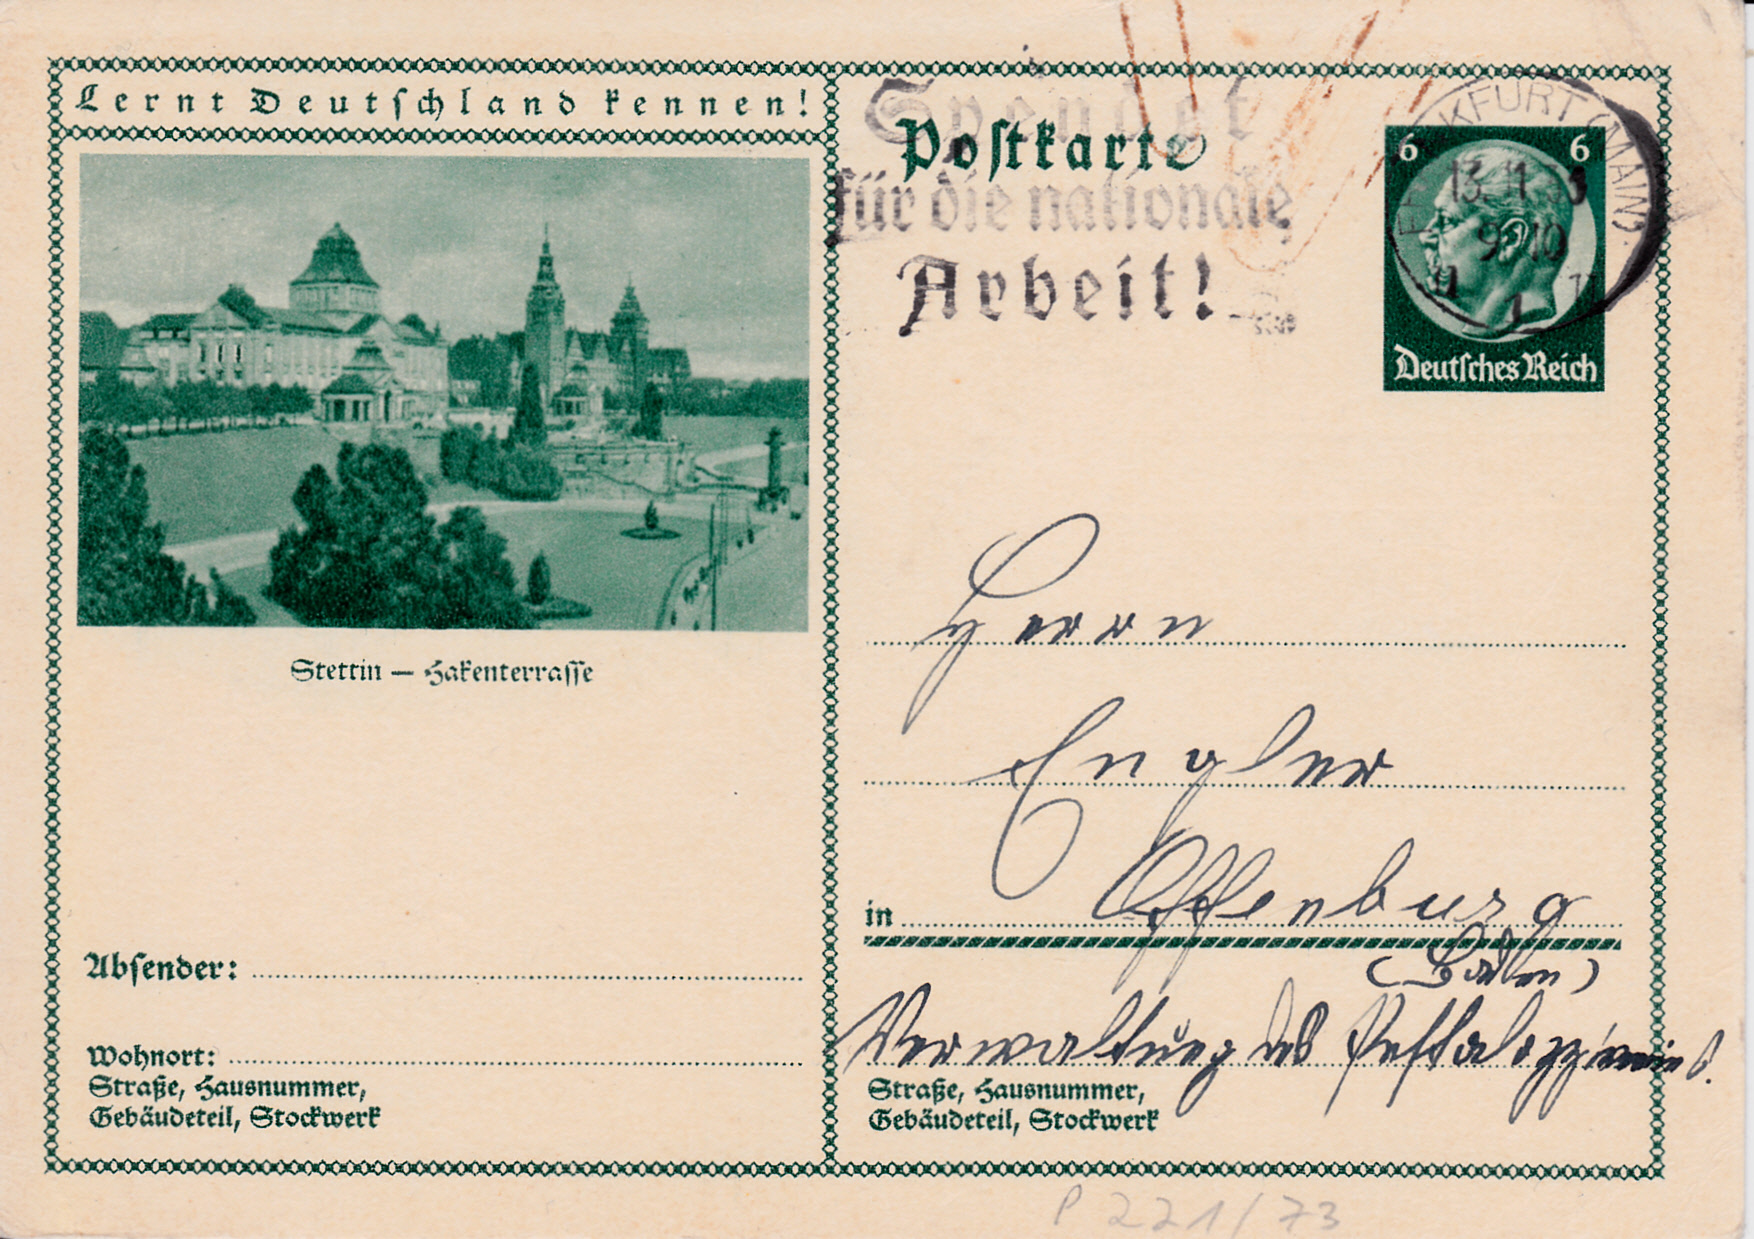 Lernt Deutschland kennen!
Stettin — Hakenterrasse
Absender:
Wohnort:
Straße, Hausnummer,
Gebäudeteil, Stockwerk
Spendet
Postkarte
für die nationale
Arbeit!
FRANKFURT (MAIN)
13.11.33
9-10
6 6
Deutsches Reich
Herrn
Engler
in Offenburg
(Baden)
Verwaltung des Pestalozzivereins.
Straße, Hausnummer,
Gebäudeteil, Stockwerk
P 221/73